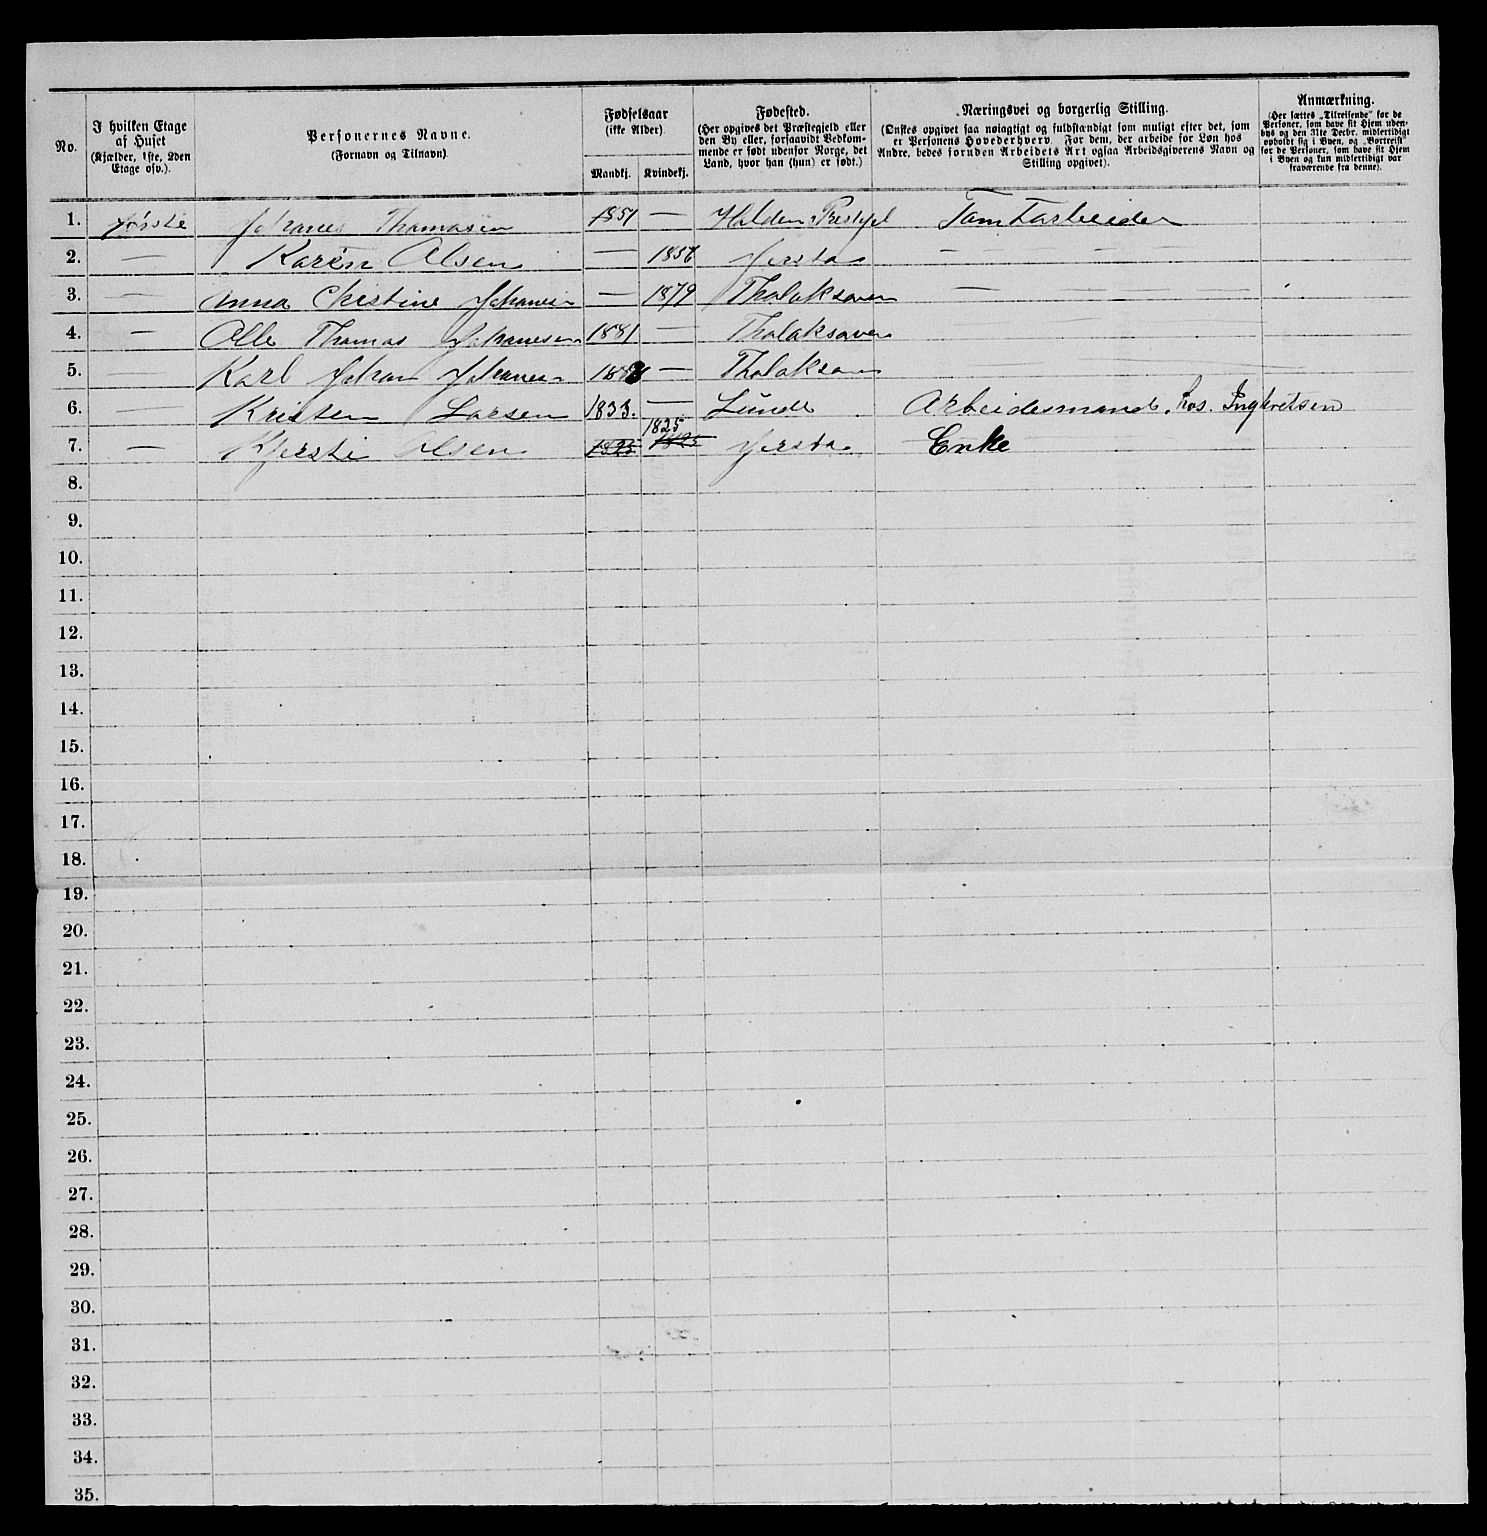 No.
I hvilken Etage
af Huset
(Kjælder, 1ste, 2den
Etage osv.).
Personernes Navne.
(Fornavn og Tilnavn)
Fødselsaar
(ikke Alder).
Mandkj. Kvindekj.
Fødested.
(Her opgives det Præstegjeld eller
den By eller, forsaavidt Vedkom-
mende er født udenfor Norge, det
Land, hvor han (hun) er født.)
Næringsvei og borgerlig Stilling.
(Ønskes opgivet saa nøiagtigt og fuldstændigt som muligt efter det, som
er Personens Hovederhverv. For dem, der arbeide for Løn hos
Andre, bedes foruden Arbeidets Art ogsaa Arbeidsgiverens Navn og
Stilling opgivet).
Anmærkning.
(Her sættes „Tilreisende" for de
Personer, som have sit Hjem uden-
bys og den 31te Decbr. midlertidigt
opholdt sig i Byen, og „Bortreist"
for de Personer, som have sit Hjem
i Byen og kun midlertidigt var
fraværende fra denne).
1. Første Johanes Thomasen 1851 — Tomtarbeider
2. — Karen Olsen — 1856 Jersta — — —
3. — Anna Christine — 1879 Tholaksaven — — —
4. — Olle Thomas Johanesen 1881 — Tholaksaven
5. — Karl Johan —
6. — Kristen Larsen 1833. — Lunde Arbeidesmand. hos. Ingbretsen
7. — Kjersti Olsen 1825 1825 1825 Jersta Enke
8.
9.
10.
11.
12.
13.
14.
15.
16.
17.
18.
19.
20.
21.
22.
23.
24.
25.
26.
27.
28.
29.
30.
31.
32.
33.
34.
35.